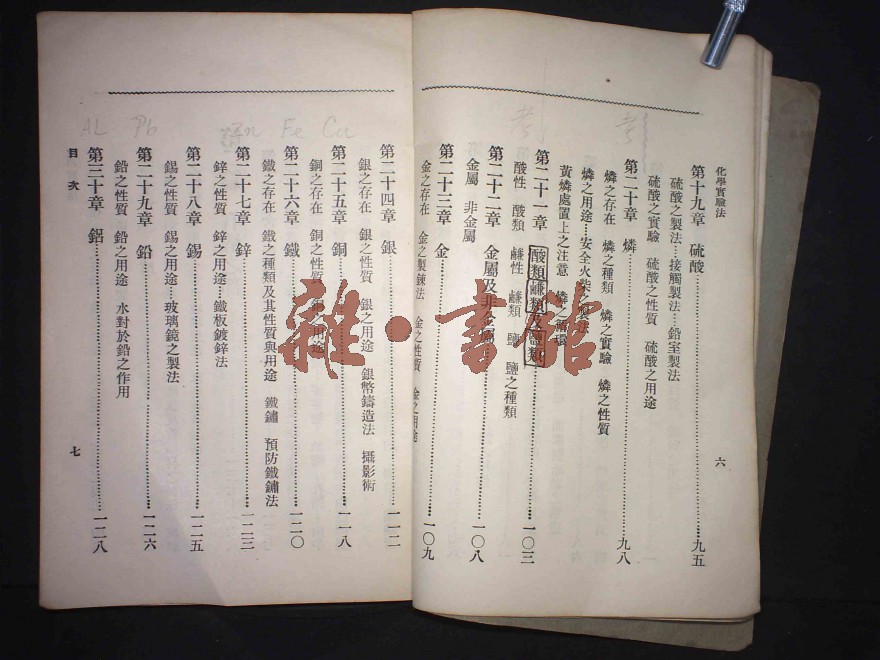 化學實驗法
六
第十九章 硫酸……九五
硫酸之製法…接觸製法…鉛室製法
硫酸之實驗 硫酸之性質 硫酸之用途
第二十章 燐……九八
燐之存在 燐之種類 燐之實驗 燐之性質
燐之用途…安全火柴之製法
黃燐處置上之注意 燐之循環
第二十一章 酸類鹼類及鹽類……一〇三
酸性 酸類 鹼性 鹼類 鹽 鹽之種類
第二十二章 金屬及非金屬……一〇八
金屬 非金屬
第二十三章 金……一〇九
金之存在 金之製鍊法 金之性質 金之用途
第二十四章 銀……一一二
銀之存在 銀之性質 銀之用途 銀幣鑄造法 攝影術
第二十五章 銅……一一八
銅之存在 銅之性質 銅之用途
第二十六章 鐵……一二〇
鐵之存在 鐵之種類及其性質與用途 鐵鏽 預防鐵鏽法
第二十七章 鋅……一二三
鋅之性質 鋅之用途…鐵板鍍鋅法
第二十八章 錫……一二五
錫之性質 錫之用途…玻璃鏡之製法
第二十九章 鉛……一二六
鉛之性質 鉛之用途 水對於鉛之作用
第三十章 鋁……一二八
目次
七
考
Cu
Fe
Pb
AL
雜·書館